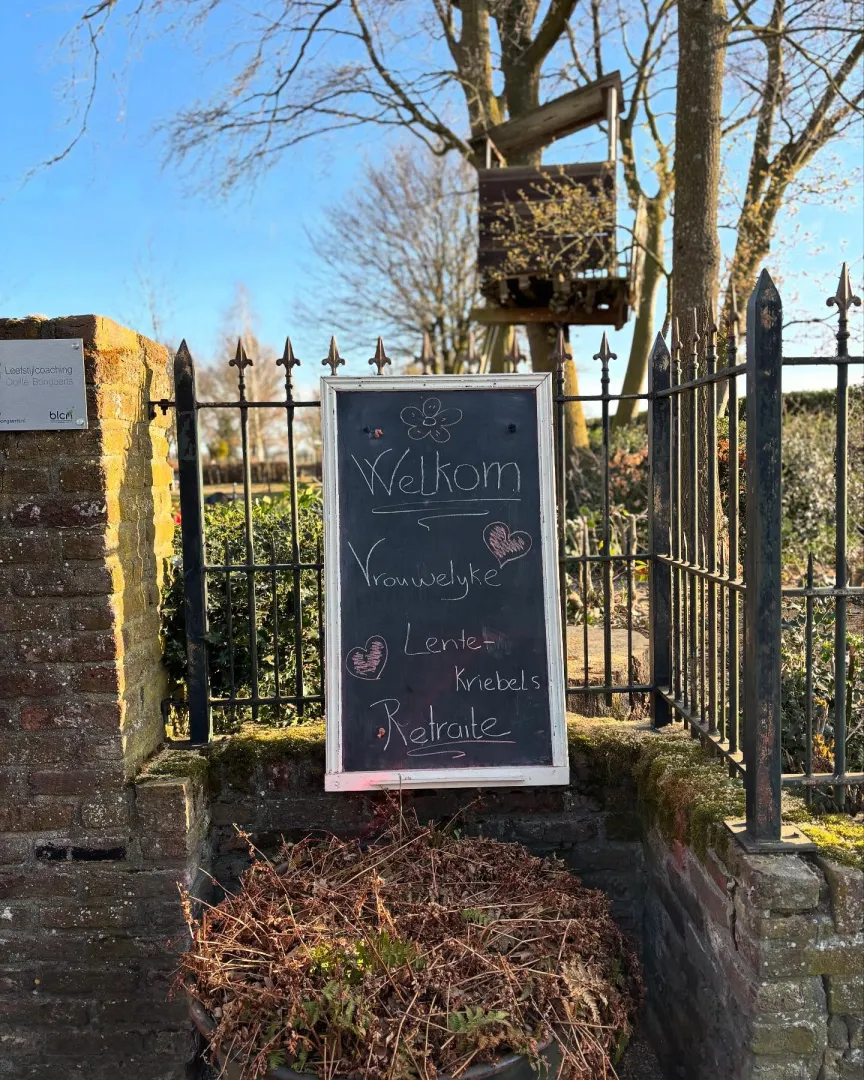 Leefstijlcoaching
blcn
Welkom
Vrouwelyke
Lente-
Kriebels
Retraite